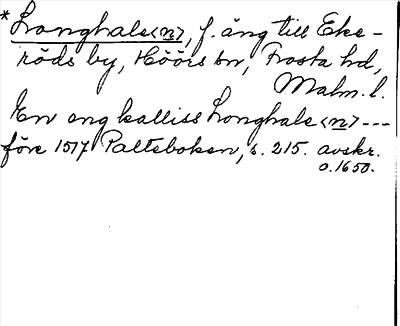 *Longhale<n>, f. äng till Eke-
röds by, Höörs sn, Frosta hd,
Malm. l.
En eng kalliss Longhale <n> ---
före 1517 Palteboken, s. 215. avskr.
o. 1650.